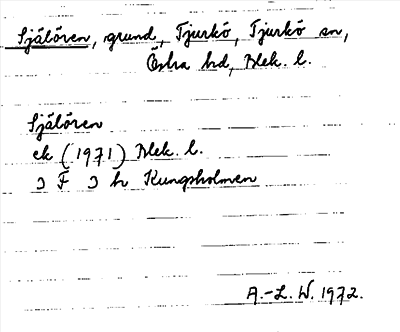 Själören, grund, Tjurkö, Tjurkö sn,
Östra hd, Blek. l.
Själören
ek (1971) Blek. l.
3 F 3 h Kungsholmen
A.-L. W. 1972.